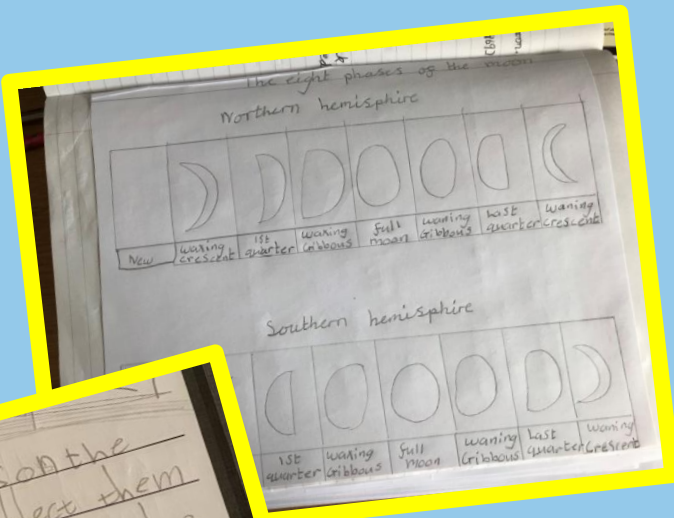 The eight phases of the moon
Northern hemisphere
New
waxing crescent
1st quarter
waxing Gibbous
full moon
waning Gibbous
Last quarter
waning crescent
Southern hemisphere
1st quarter
waxing Gibbous
full moon
waning Gibbous
Last quarter
waning Crescent
on the
them